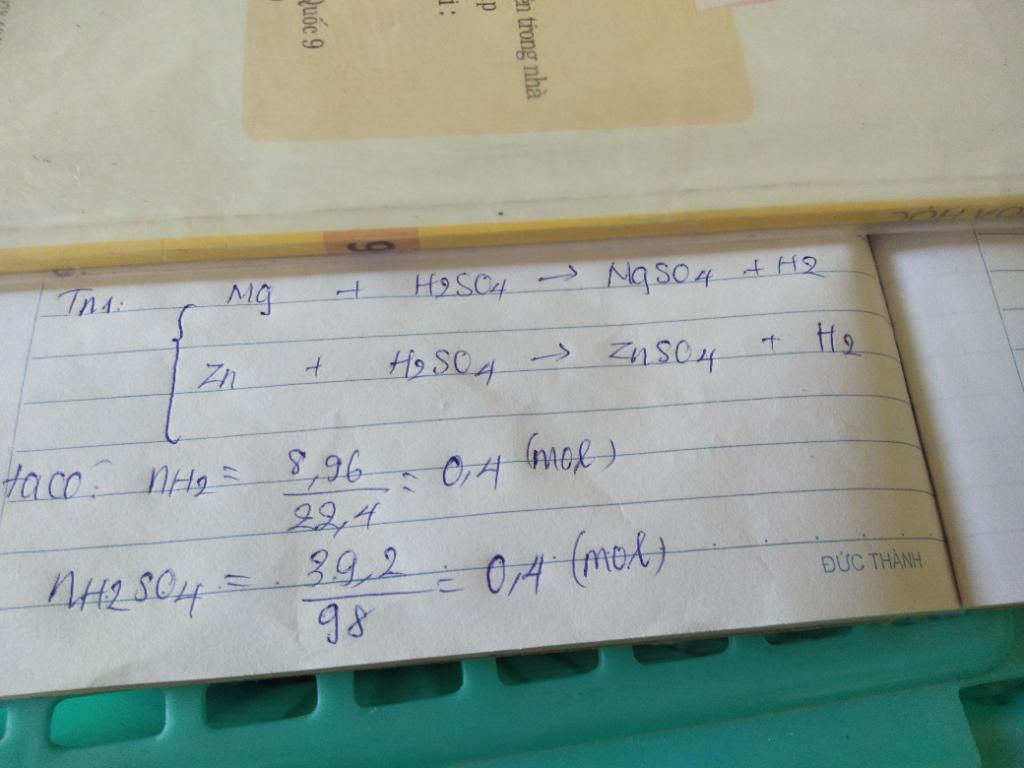 ên trong nhà
ập
i :
Quốc 9
9
Tn1:
Mg + H2SO4 → MgSO4 + H2
Zn + H2SO4 → ZnSO4 + H2
taco: nH2 = 8,96 / 22,4 = 0,4 (mol)
nH2SO4 = 39,2 / 98 = 0,4 (mol)
ĐỨC THÀNH